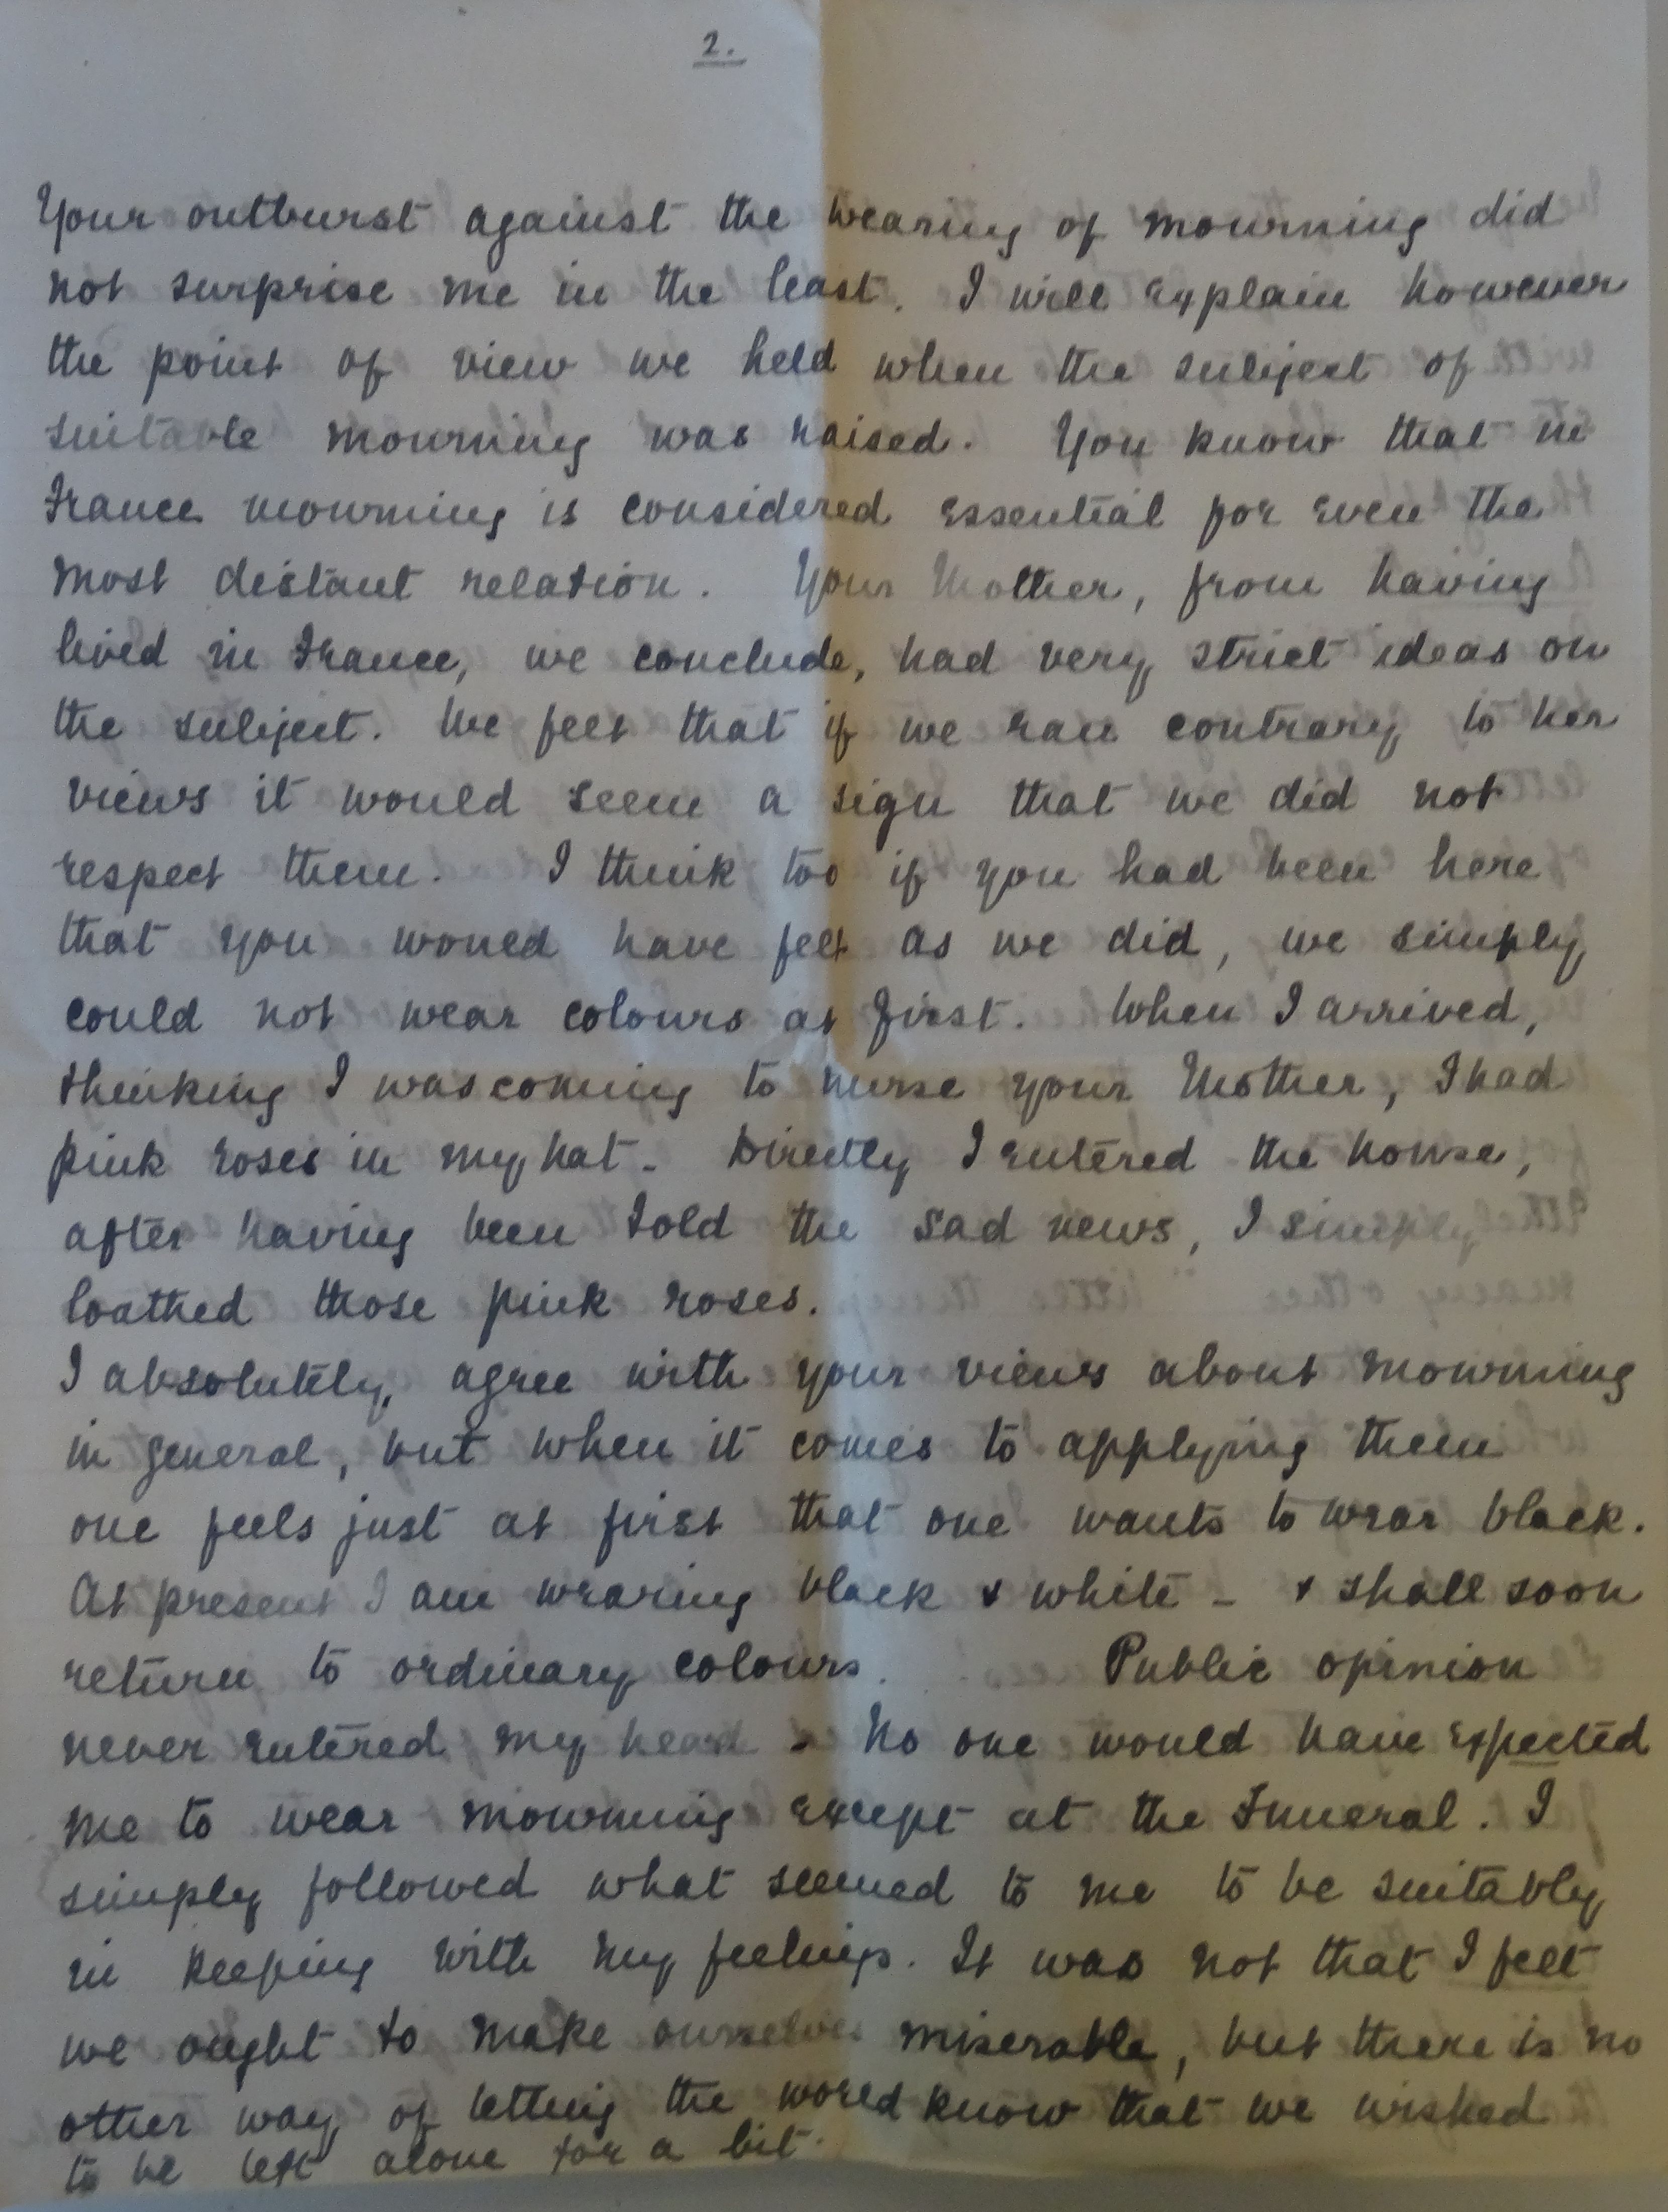 2.
Your outburst against the wearing of mourning did
not surprise me in the least. I will explain however
the point of view we held when the subject of
suitable mourning was raised. You know that in
France mourning is considered essential for even the
most distant relation. Your Mother, from having
lived in France, we conclude, had very strict ideas on
the subject. We felt that if we ran contrary to her
views it would seem a sign that we did not
respect them. I think too if you had been here
that you would have felt as we did, we simply
could not wear colours at first. When I arrived,
thinking I was coming to nurse your Mother, I had
pink roses in my hat - Directly I entered the house,
after having been told the sad news, I simply
loathed those pink roses.
I absolutely, agree with your views about mourning
in general, but when it comes to applying them
one feels just at first that one wants to wear black.
At present I am wearing black & white - & shall soon
return to ordinary colours. Public opinion
never entered my head No one would have expected
me to wear mourning except at the Funeral. I
simply followed what seemed to me to be suitably
in keeping with my feelings. It was not that I felt
we ought to make ourselves miserable, but there is no
other way of letting the world know that we wished
to be left alone for a bit.